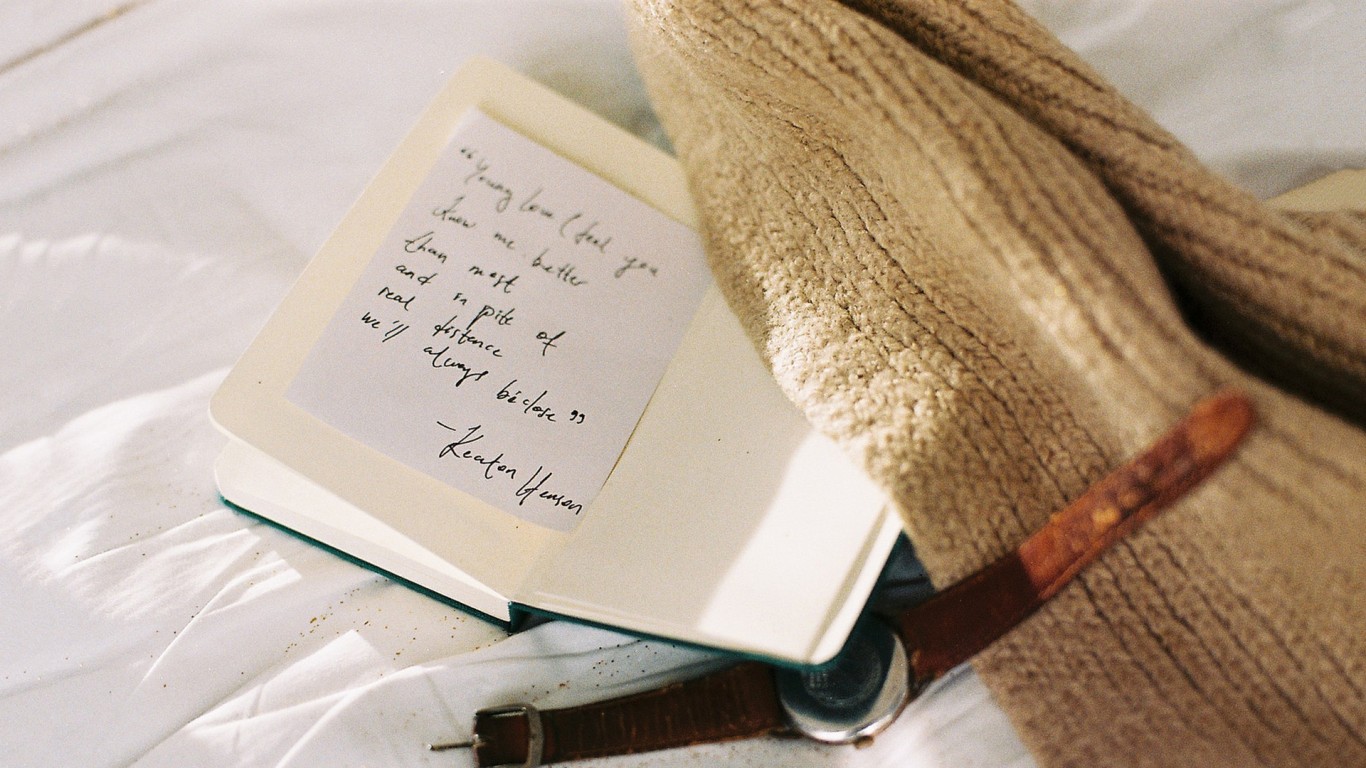 “Young love I feel you
know me better
than most
and in pite of
real distance
we'll always be close”
- Keaton Henson